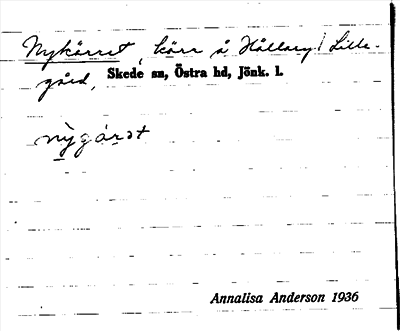 Nykärret, kärr å Hållary! Lille-
gård, Skede sn, Östra hd, Jönk. l.
nỳgárət
Annalisa Anderson 1936